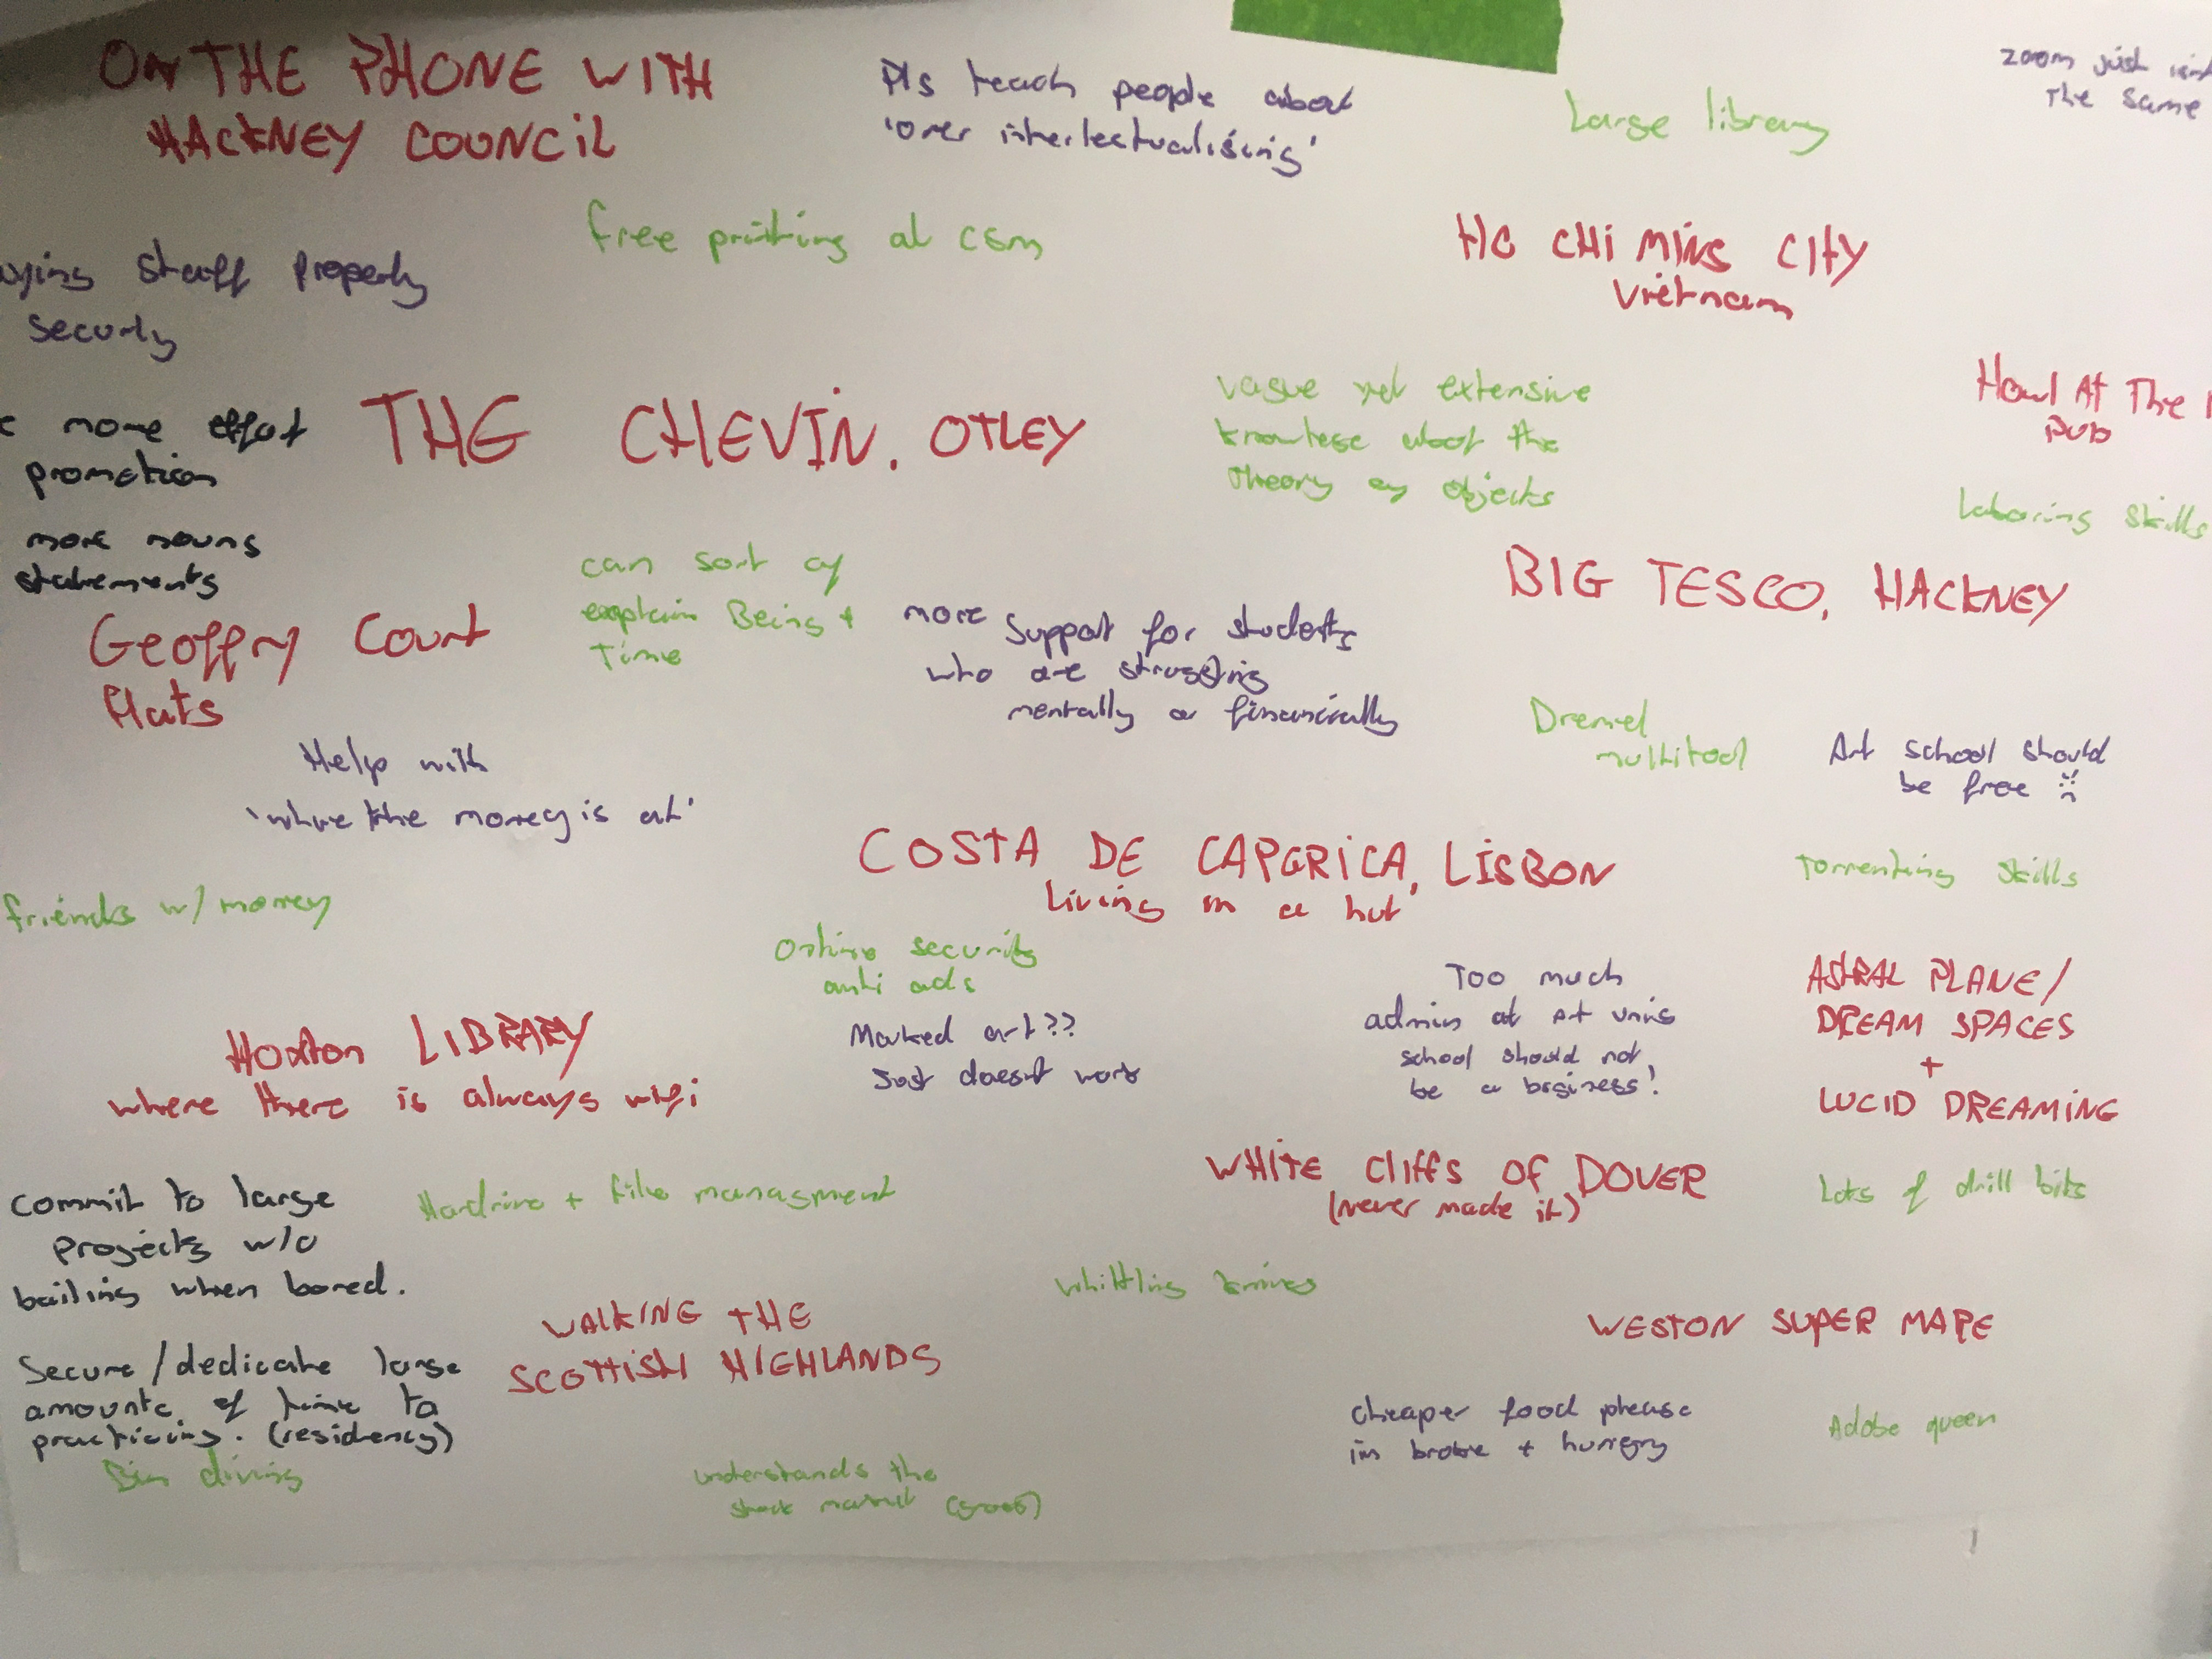 ON THE PHONE WITH
HACKNEY COUNCIL
Pls teach people about
'over interlectualising'
Large library
zoom just
The same
free printing at csm
HO CHI MINS CITY
Vietnam
staff properly
security
more effort
promotion
THE CHEVIN. OTLEY
vague yet extensive
knowlege about the
theory of objects
Howl At The
PUB
Laboring skills
more nouns
statements
can sort of
explain Being +
Time
BIG TESCO, HACKNEY
Geoffry Court
Flats
more support for students
who are struggling
mentally or financially
Dremel
multitool
Art school should
be free :(
Help with
'where the money is at'
COSTA DE CAPERICA, LISBON
Living in a hut
Torrenting skills
friends w/ money
Online security
anti ads
Too much
admin at Art unis
school should not
be a business!
ASTRAL PLANE/
DREAM SPACES
+
LUCID DREAMING
Hoxton LIBRARY
where there is always wifi
Marked art??
Just doesnt work
WHITE Cliffs Of DOVER
(never made it)
Lots of drill bits
Commit to large
projects w/o
bailing when bored.
Hardrive + file managment
whittling knives
WALKING THE
SCOTTISH HIGHLANDS
WESTON SUPER MARE
Secure/dedicate large
amounts of time to
practicing. (residency)
cheaper food please
im broke + hungry
Adobe queen
Bin diving
understands the
stock market